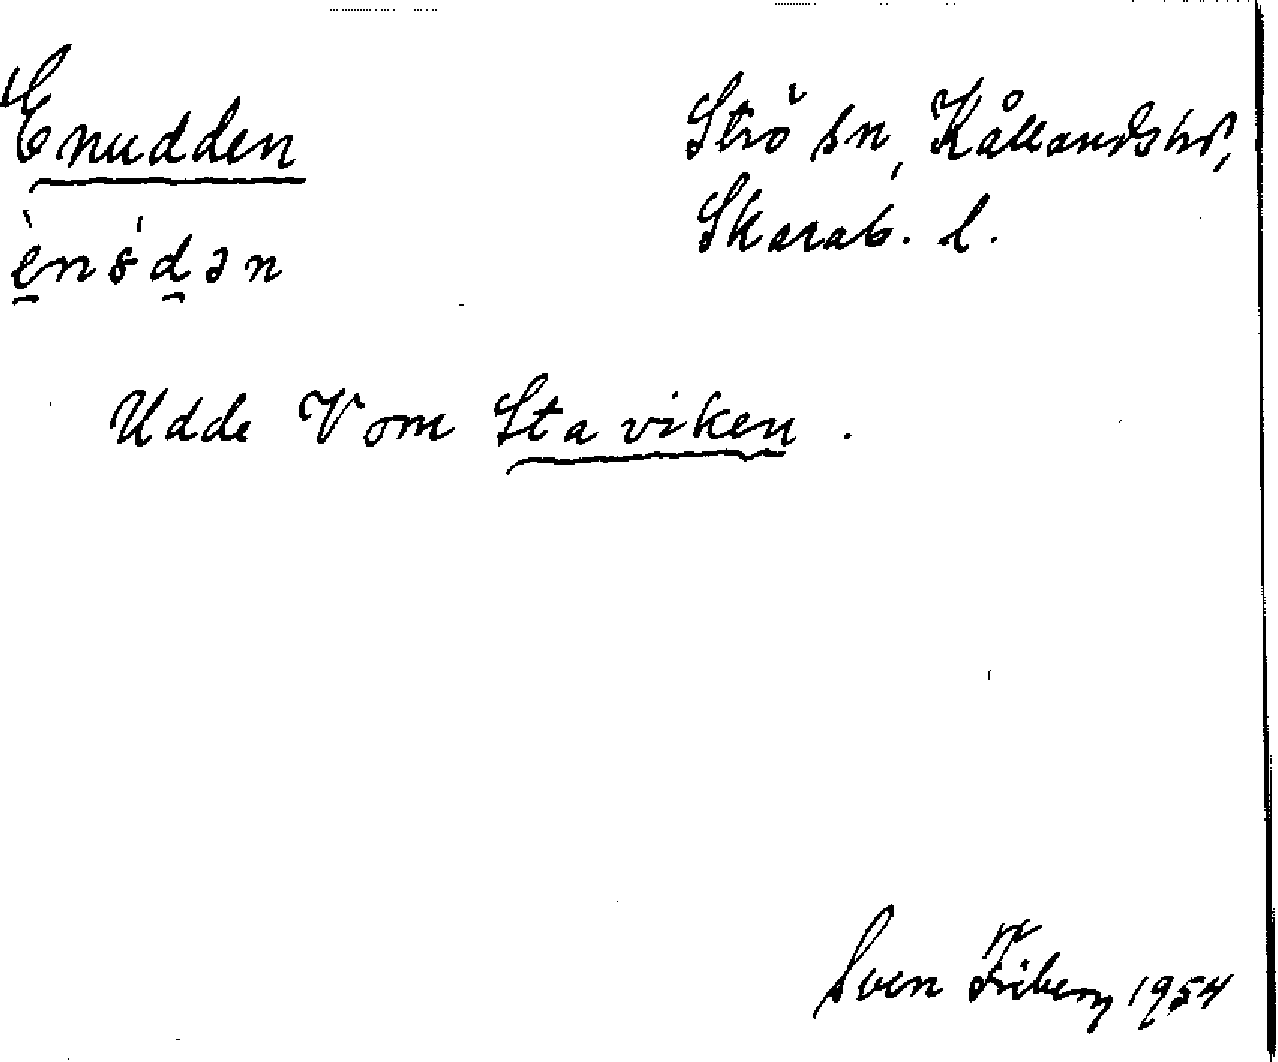 Enudden
Strö sn, Kållands hd,
Skarab. l.
Udde V om Staviken.
Sven Friberg 1954